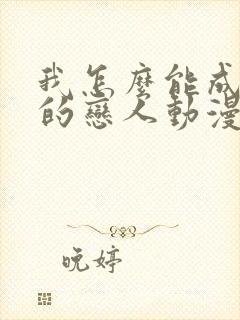 我怎麼能成
的戀人動漫
晚婷